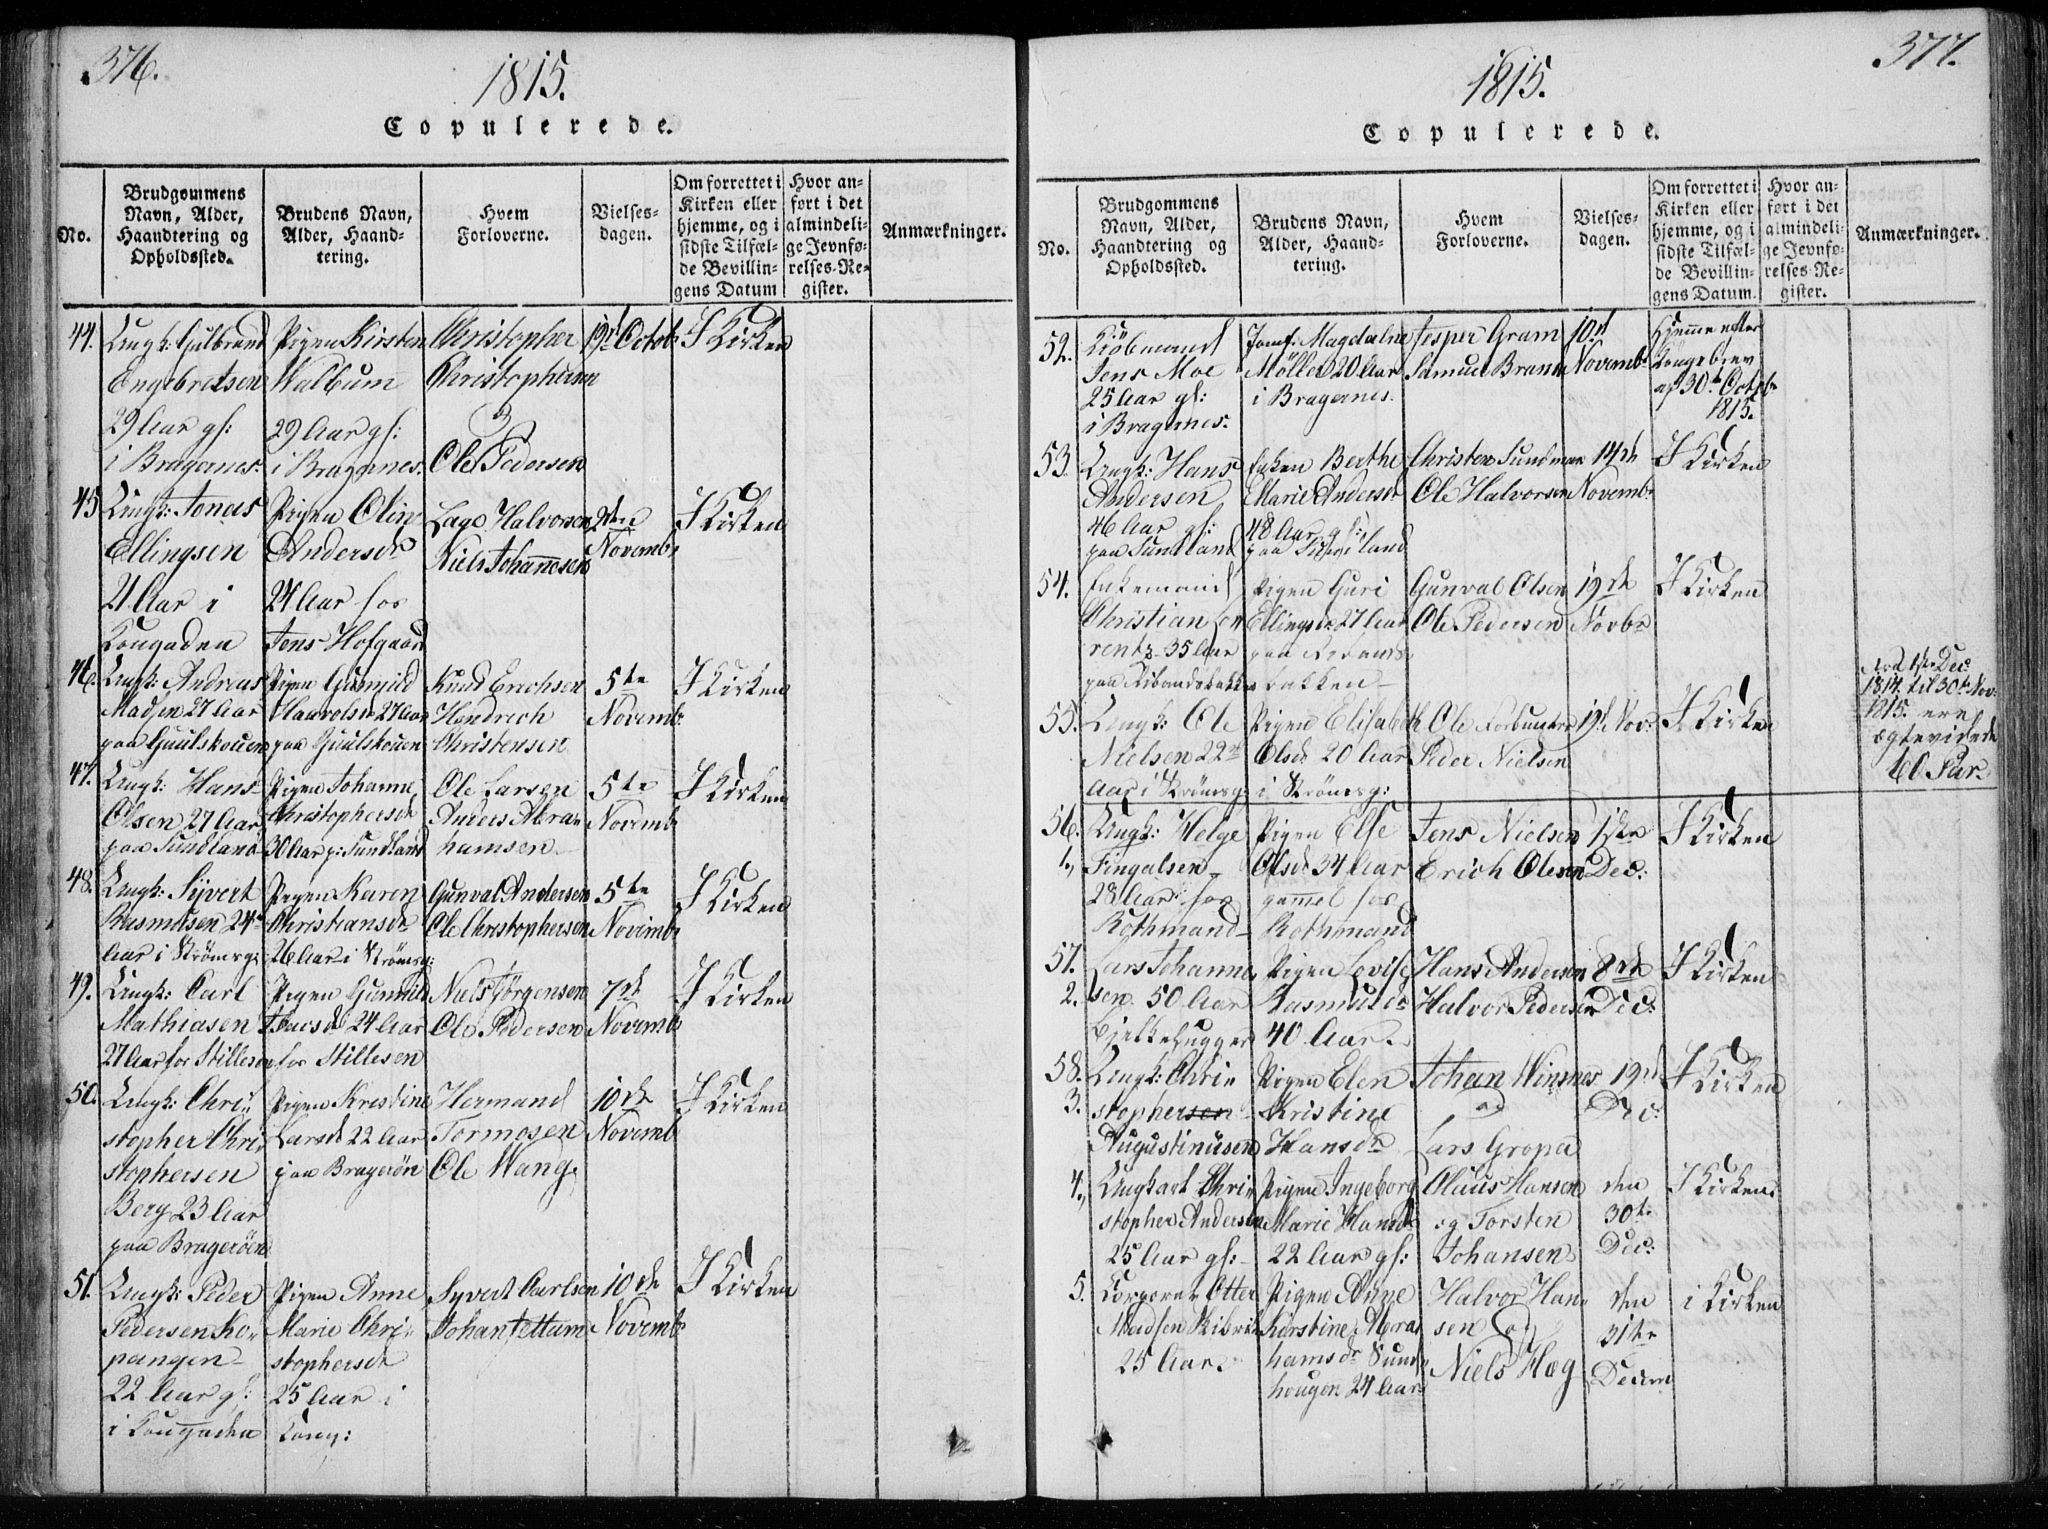 376.
1815.
Copulerede.
No.
Brudgommens Navn, Alder, Haandtering og Opholdssted.
Brudens Navn, Alder, Haandtering.
Hvem Forloverne.
Vielsesdagen.
Om forrettet i Kirken eller hjemme, og i sidste Tilfælde Bevillingens Datum
Hvor anført i det almindelige Jevnførelses-Register.
Anmærkninger.
44.
Ungk: Gulbrand
Engebretsen
29 Aar gl:
i Bragernes.
Pigen Kirsten
Walbum
29 Aar gl:
i Bragernes.
Christopher
Christophersen
Ole Pedersen
19d Octob:
I Kirken
45
Ungk: Jonas
Ellingsen
21 Aar i
Kongaden
Pigen Olin
Andersdr
24 Aar hos
Jens Hofgaard
Lage Halvorsen
Niels Johannesen
2den
Novemb:
I Kirken
46.
Ungk: Andreas
Madsen 27 Aar
paa Guulskouen
Pigen Gunnild
Haavolsdr 27 Aar
paa Guulskouen
Knud Erichsen
Hendrich
Christensen
5te
Novemb:
I Kirken
47.
Ungk: Hans
Olsen 27 Aar
paa Sundland
Pigen Johanne
Christophersdr
30 Aar p: Sundland
Ole Larsen
Anders Abra-
hamsen
5te
Novemb
I Kirken
48.
Ungk: Syvert
Rasmusen 24
Aar i Strömsg:
Pigen Karen
Christiansdr
26 Aar i Strömsg:
Gunval Andersen
Ole Christophersen
5te
Novemb
I Kirken
49.
Ungk: Carl
Mathiasen
27 Aar hos Stillesen
Pigen Gunnild
24 Aar
hos Stillesen
Niels Jörgensen
Ole Pedersen
7de
Novemb
I Kirken
50.
Ungk: Chri-
stopher Chri-
stophersen
Berg 23 Aar
paa Bragerøen
Pigen Kirstine
Larsdr 22 Aar
paa Bragerøn
Hermand
Tormosen
Ole Wang
10de
Novemb
I Kirken
51.
Ungk: Peder
Pedersen Ko-
pangen
22 Aar gl:
i Kongaden
Pigen Anne
Marie Chri-
stophersdr
25 Aar i
Kong:
Syvert Carlsen
Johan Tettum
10de
Novemb
I Kirken
377.
1815.
Copulerede.
No.
Brudgommens Navn, Alder, Haandtering og Opholdssted.
Brudens Navn, Alder, Haandtering.
Hvem Forloverne.
Vielsesdagen.
Om forrettet i Kirken eller hjemme, og i sidste Tilfælde Bevillingens Datum.
Hvor anført i det almindelige Jevnførelses-Register.
Anmærkninger.
52.
Kiöbmand
Jens Moe
25 Aar gl:
i Bragernes.
Jomf: Magdalene
Möller 20 Aar
i Bragernes.
Jesper Gram
Samuel Brandt
10d
Novemb
Hjemme efter
Kongebrev
af 30te Octobr
1815.
53.
Ungk: Hans
Andersen
46 Aar gl:
paa Sundland
Enken Berthe
Marie Andersdr
48 Aar gl:
paa Sundland
Christen Sundman
Ole Halvorsen
14de
Novemb
I Kirken
54.
Enkemand
Christian Lo-
rentz 35 Aar
Pigen Guri
Ellingsdr 27 Aar
Gunval Olsen
Ole Pedersen
19de
Novbr
I Kirken
55.
Ungk: Ole
Nielsen 22
Aar i Strömsg:
Pigen Elisabeth
Olsdr 20 Aar
i Strömsg:
Ole
Peder Nielsen
19d Nov:
I Kirken
Fra 1ste Dec
1814 til 30te Nov:
1815. ere
ægteviede
60 Par.
56.
1.
Ungk: Helge
Fingalsen
28 Aar hos
Rothmand
Pigen Else
Olsdr 34 Aar
gammel hos
Rothmand
Jens Nielsen
Erich Olesen
1ste
Dec:
I Kirken
57.
2.
Lars Johanne-
sen 50 Aar
Bielkehugger
Pigen Lovise
Rasmusdr
40 Aar.
Hans Andersen
Halvor Pedersen
8de
Dec:
I Kirken
58.
3.
Ungk: Chri-
stophersen
Augustinusen
Pigen Elen
Kristine
Hansdr
Johan Winsnes
og
Lars Gropa
19d
Dec:
I Kirken
4.
Ungkarl Chri-
stopher Andersen
25 Aar gl:
Pigen Ingeborg
Marie Hansdr
22 Aar gl:
Olaus Hansen
og Torsten
Johansen
den
30te
Dec:
I Kirken.
5.
Corporal Otter
Madsen
25 Aar.
Pigen Anne
Kirstine Abra-
hamsdr Sund-
hougen 24 Aar
Halvor Han-
sen og
Niels Hæg
den
31te
Decem
i Kirken